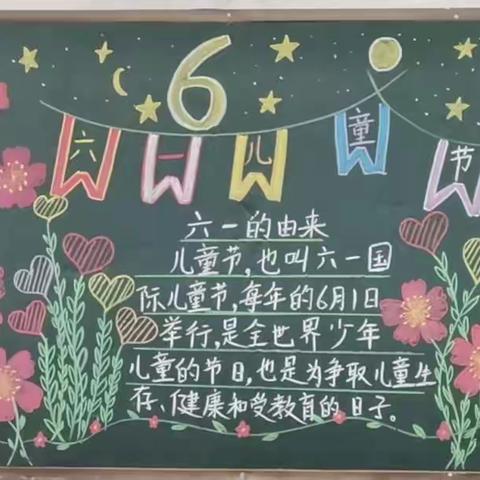 6
六一儿童节
六一的由来
儿童节,也叫六一国
际儿童节,每年的6月1日
举行,是全世界少年
儿童的节日,也是为争取儿童生
存、健康和受教育的日子。